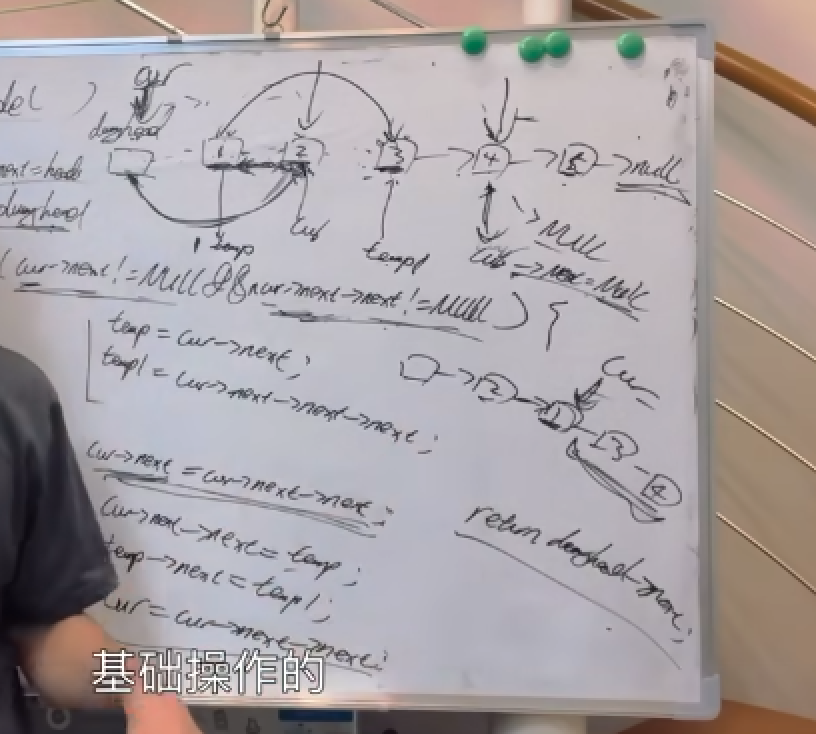 cur
dummyhead
1 2 3 -> 4 -> 5 -> null
next=head
dummyhead
temp
cur
temp1
-> NULL
cur->next=NULL
(cur->next!=NULL && cur->next->next!=NULL) {
temp = cur->next;
temp1 = cur->next->next->next;
cur
-> 2 -> 1 - 3 - 4
cur->next = cur->next->next;
cur->next->next = temp;
temp->next = temp1;
cur = cur->next->next;
return dummyhead->next;
基础操作的